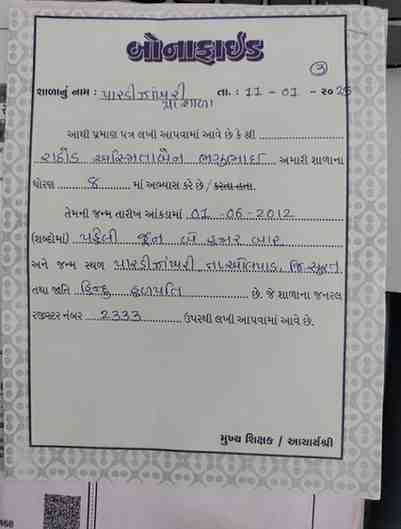 બોનાફાઈડ
૩
શાળાનું નામ : પારડીઝાંખરી તા. : 11 - 01 - ૨૦25
પ્રા શાળા
આથી પ્રમાણ પત્ર લખી આપવામાં આવે છે કે શ્રી
રાઠોડ અસ્મિતાબેન ભગુભાઈ અમારી શાળાના
ધોરણ 8 માં અભ્યાસ કરે છે / કરતા હતા.
તેમની જન્મ તારીખ આંકડામાં 01 -06-2012
(શબ્દોમાં) પહેલી જૂન બે હજાર બાર
અને જન્મ સ્થળ પારડીઝાંખરી તા.ઓલપાડ, જિ.સુરત
તથા જાતિ હિન્દુ હળપતિ છે. જે શાળાના જનરલ
રજીસ્ટર નંબર 2333 ઉપરથી લખી આપવામાં આવે છે.
મુખ્ય શિક્ષક / આચાર્યશ્રી